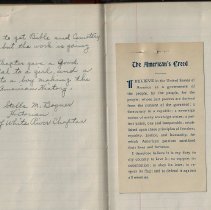 to get Bible and Country
but the work is going
Chapter gave a Good
al to a girl, and a
to a boy making the
American History.
Stella M.
Historian
White River Chapter
The American's Creed
I BELIEVE in the United States of
America as a government of
the people, by the people, for the
people; whose just powers are derived
from the consent of the governed; a
democracy in a republic; a sovereign
nation of many sovereign states; a perfect
union, one and inseparable; established
upon those principles of freedom,
equality, justice, and humanity, for
which American patriots sacrificed
their lives and fortunes.
I therefore believe it is my duty to
my country to love it; to support its
constitution; to obey its laws; to
respect its flag; and to defend it against
all enemies.